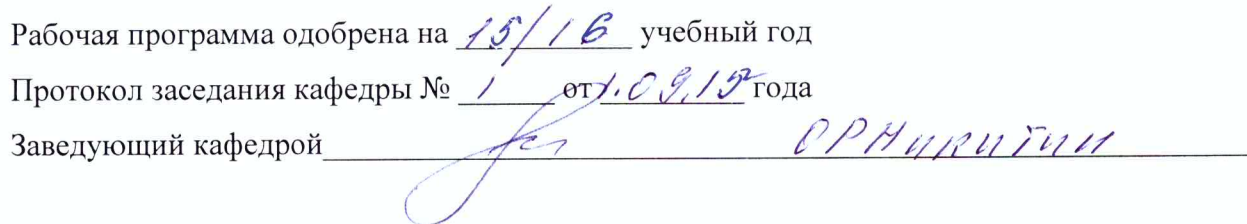 Рабочая программа одобрена на 15/16 учебный год
Протокол заседания кафедры № 1 от 1.09.15 года
Заведующий кафедрой ОРНикитин